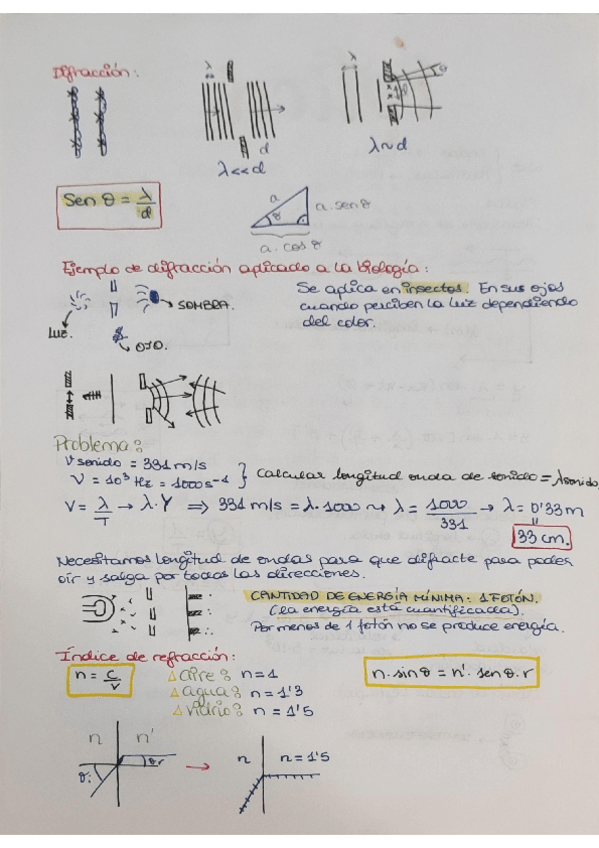 Difracción:
λ
d
λ<<d
λ
θ
λ~d
Sen θ = λ/d
a
θ
a. senθ
a. cos θ
Ejemplo de difracción aplicado a la biología:
Se aplica en insectos. En sus ojos
cuando perciben la luz dependiendo
del color.
SOMBRA.
Luz.
OJO.
Problema:
Vsonido = 331 m/s
ν = 10³ Hz = 1000 s⁻¹
} Calcular longitud onda de sonido = λsonido
V = λ/T → λ.γ ⇒ 331 m/s = λ.1000 ⤳ λ = 1000/331 → λ = 0'33 m
"
33 cm.
Necesitamos longitud de ondas para que difracte para poder
oír y salga por todas las direcciones.
CANTIDAD DE ENERGÍA MÍNIMA: 1 FOTÓN.
(La energía está cuantificada).
Por menos de 1 fotón no se produce energía.
Índice de refracción:
n = c/v
△ aire: n=1
△ agua: n = 1'3
△ vidrio: n = 1'5
n. sin θ = n'. sen θ.r
n n'
θi θr
→
n n = 1'5